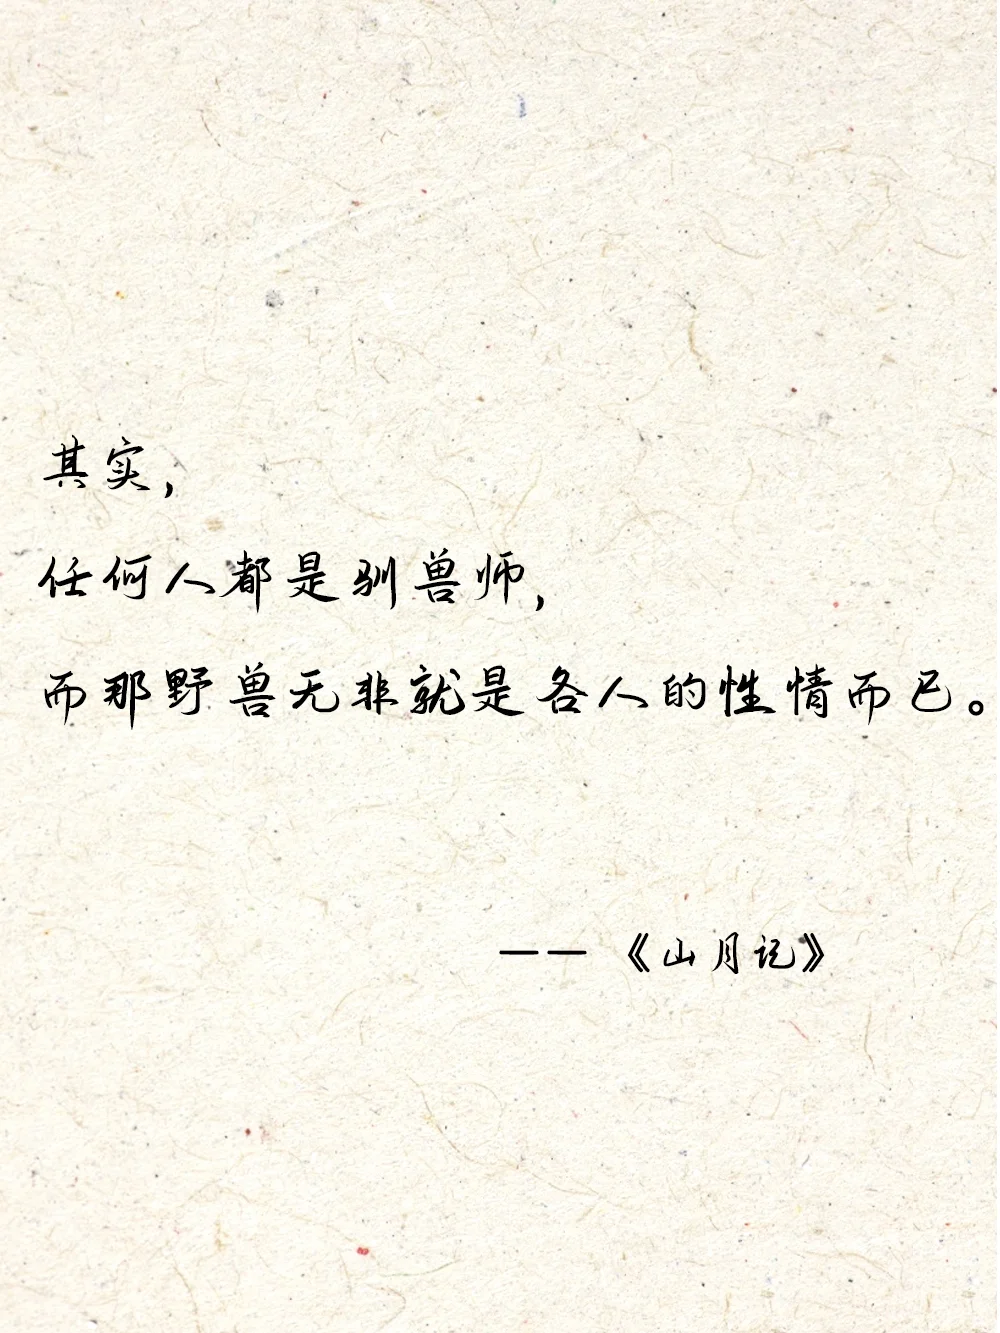 其实,
任何人都是驯兽师,
而那野兽无非就是各人的性情而已。
——《山月记》